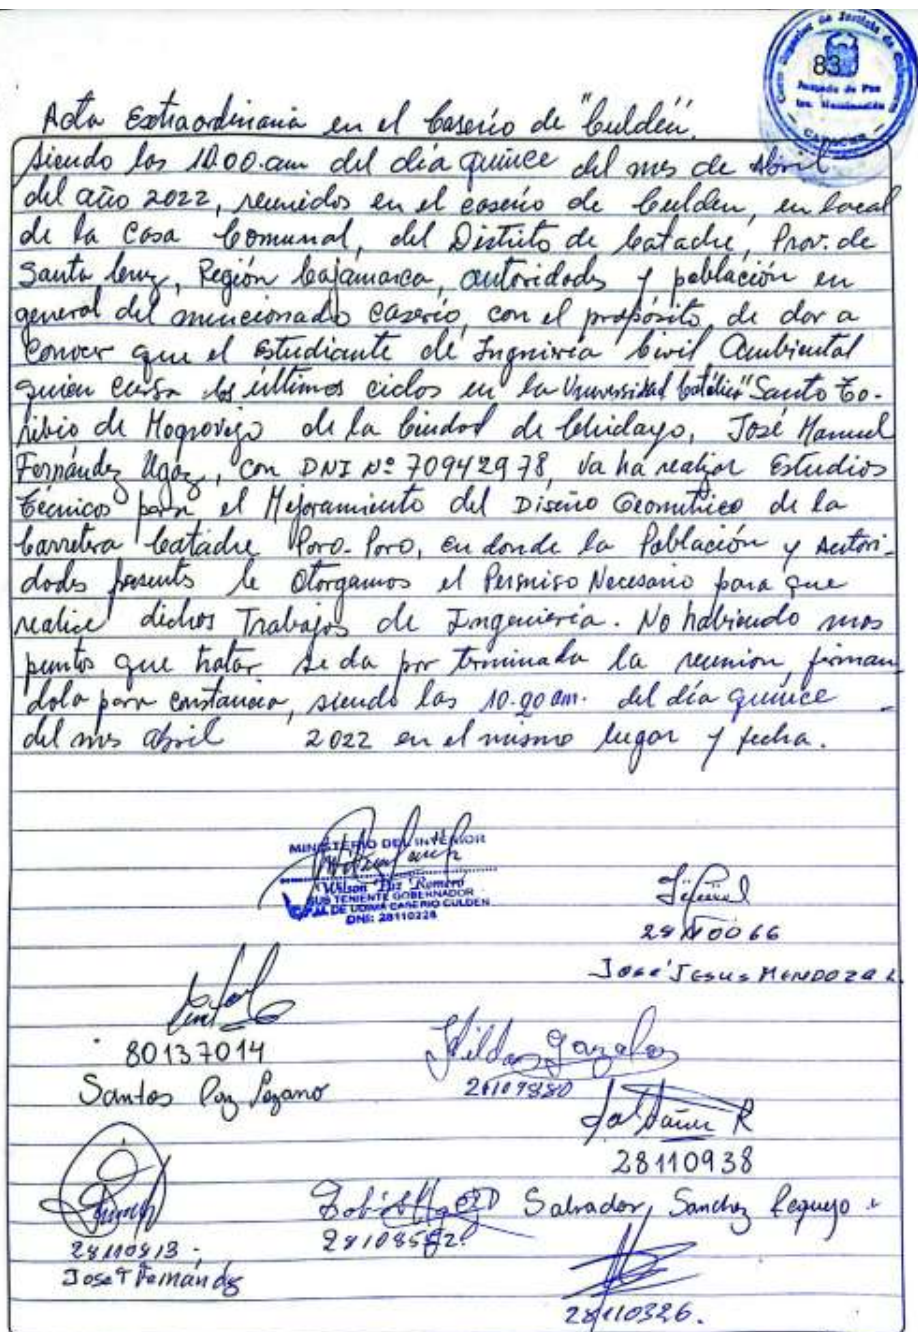 Corte Superior de Justicia de
83
Juzgado de Paz
1ra. Nominación
CATACHE
Acta Extraordinaria en el Caserio de "Culdén".
Siendo las 10.00.am del día quince del mes de Abril
del año 2022, reunidos en el caserio de Culden, en local
de la Casa Comunal, del Distrito de Catache, Prov. de
Santa Cruz, Región Cajamarca, autoridades y población en
general del mencionado caserio, con el propósito de dar a
Conocer que el estudiante de Ingnieria Civil Ambiental
quien cursa los últimos ciclos en la Universidad Católica "Santo To-
ribio de Mogrovejo de la Ciudad de Chiclayo, José Manuel
Fernández Ugaz, con DNI Nº 70942978, va ha realizar Estudios
Técnicos para el Mejoramiento del Diseño Geométrico de la
Carretera Catache Poro-Poro, en donde la Población y Autori-
dades presents le Otorgamos el Permiso Necesario para que
realice dichos Trabajos de Ingenieria. No habiendo mas
puntos que tratar se da por terminada la reunion, firman
dola para constancia, siendo las 10.90 am. del día quince
del mes abril 2022 en el mismo lugar y fecha.
MINISTERIO DEL INTERIOR
Wilson Paz Romero
SUB TENIENTE GOBERNADOR
DE UDIMA CASERIO CULDEN
DNI: 28110228
28110066
José Jesus MENDOZA L
80137014
Santos Paz Lozano
Hildo Gonzales
28109880
28110938
28110813.
Jose T Fernández
28108582.
Salvador, Sanchez Requejo
28110326.